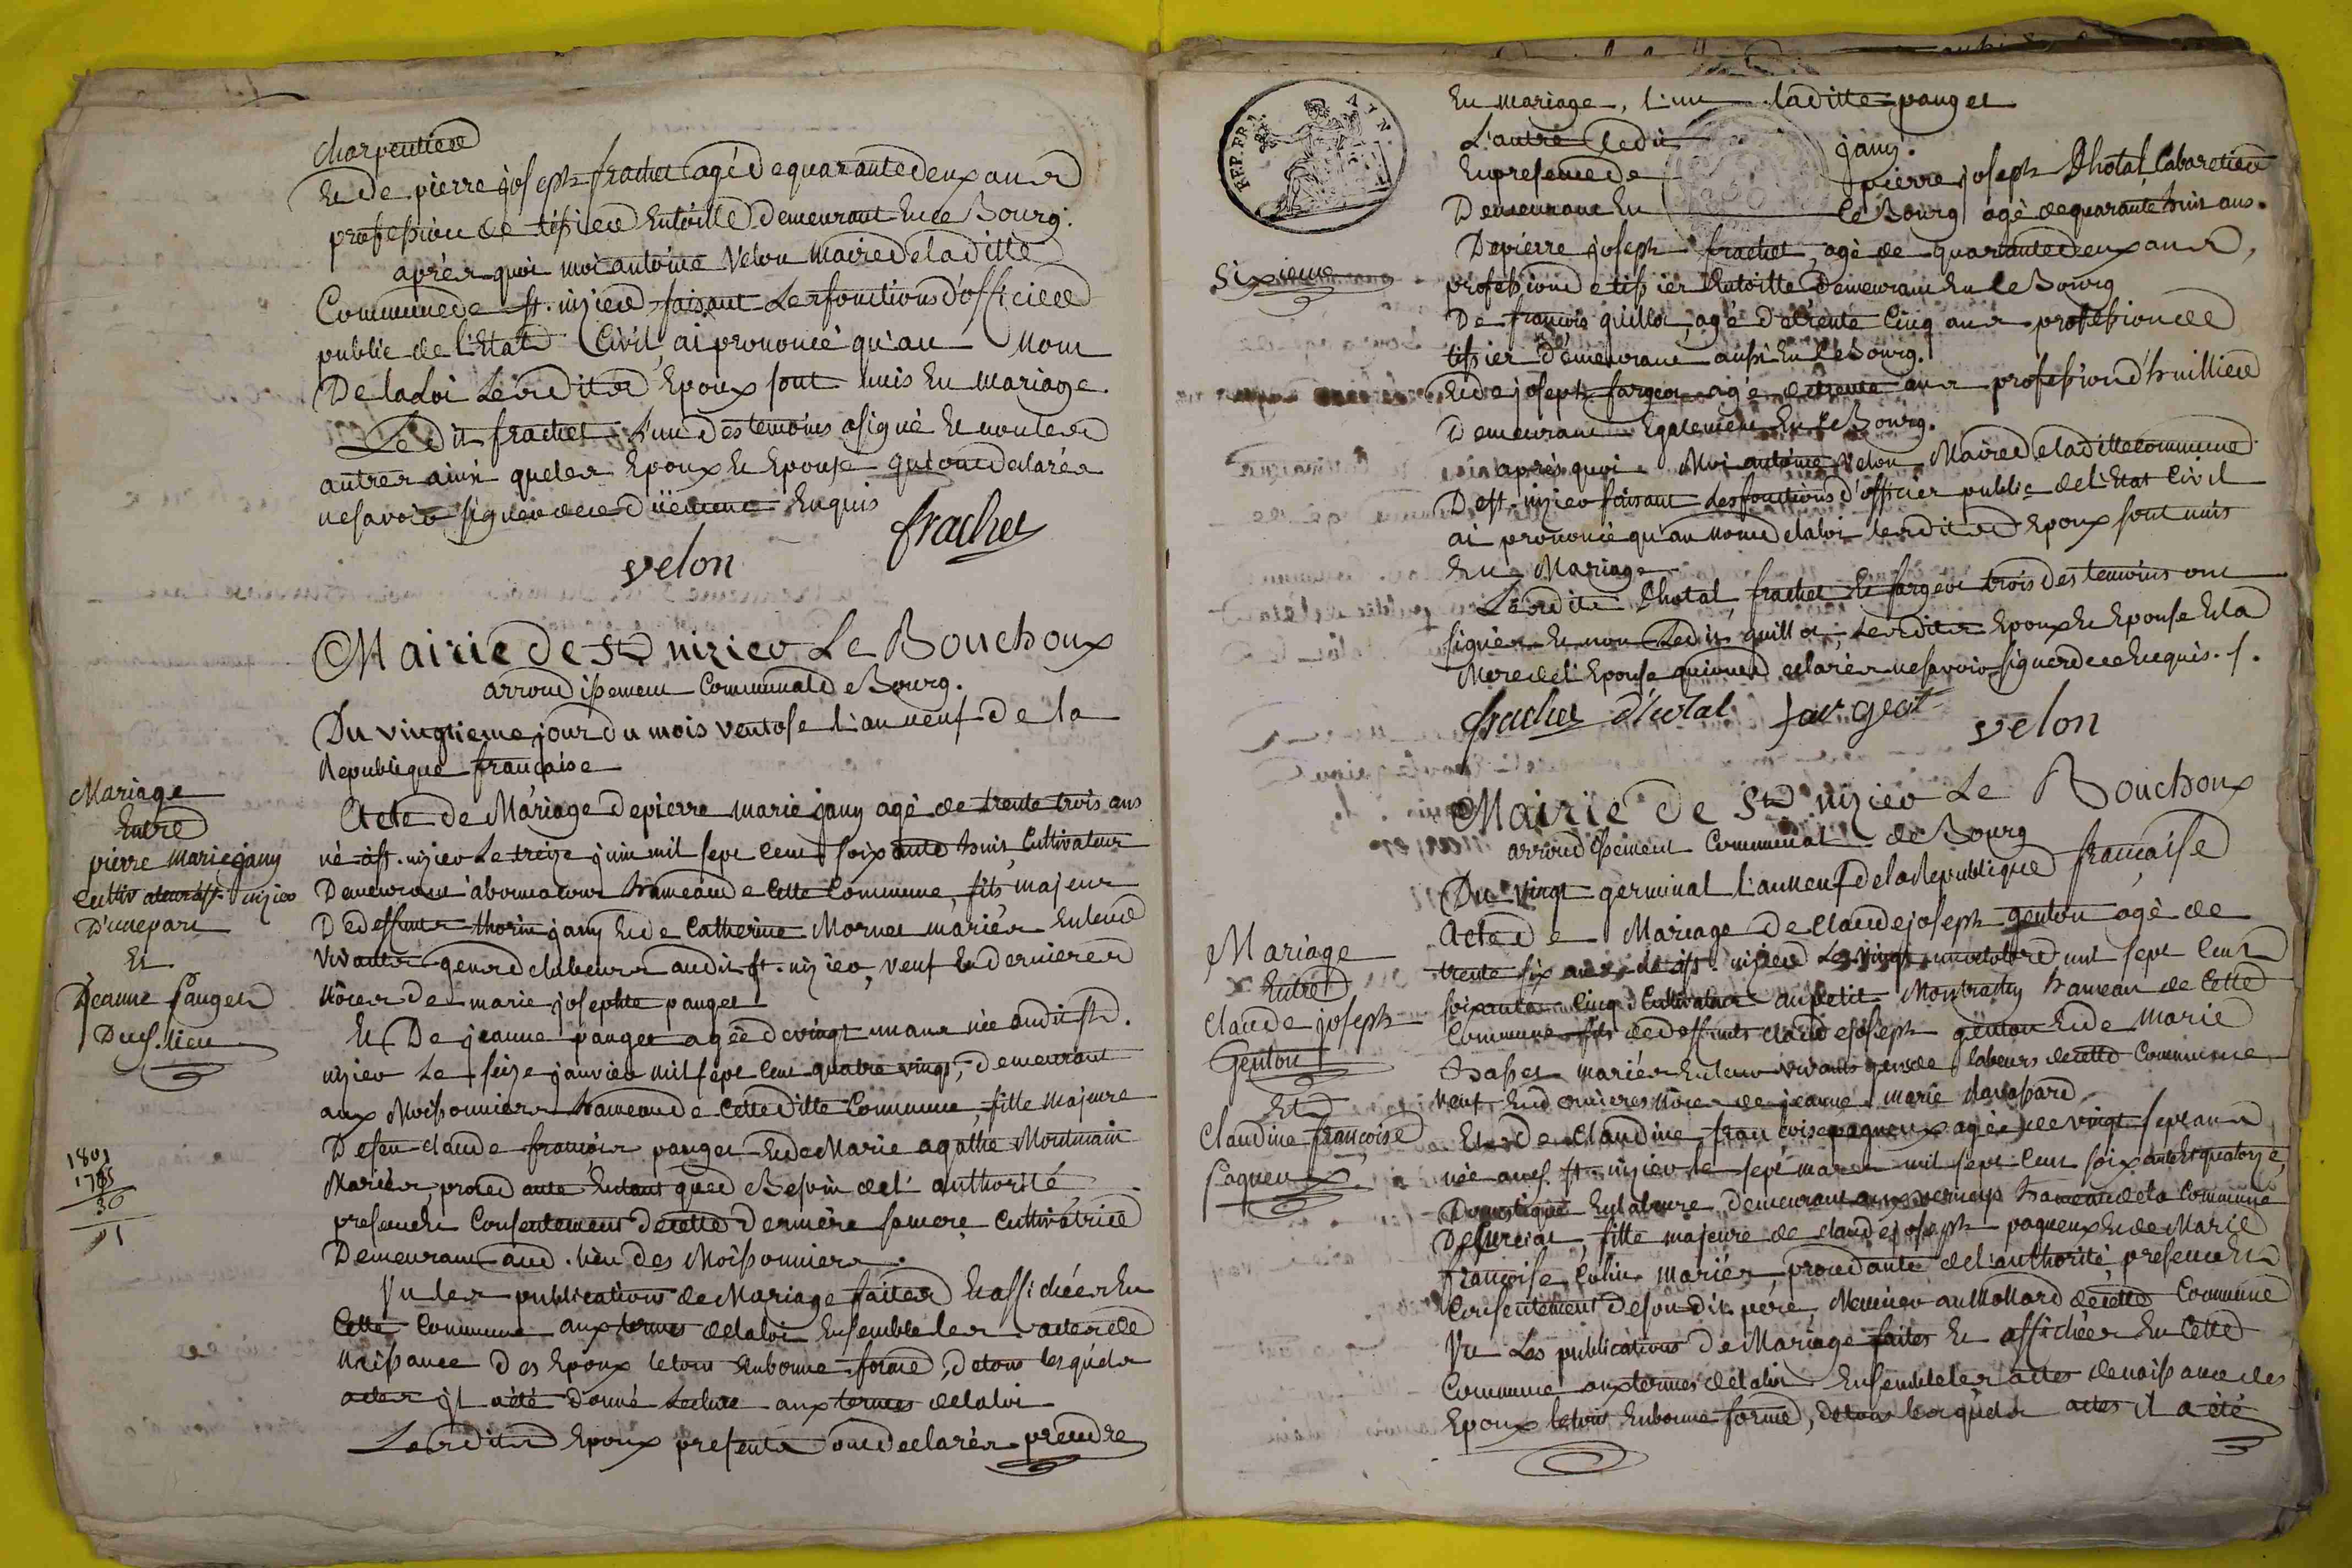 charpentier
Et de pierre joseph frachet agé de quarante deux ans
profession de tissier Entoille Demeurant En ce Bourg.
aprés quoi moi antoine Velon Maire de laditte
Commune de st. nizier faisant Les fonctions d'officier
public de l'Etat Civil, ai prononcé qu'au Nom
De la Loi Lesdits Epoux sont unis En Mariage.
Ledit frachet L'un des temoins a signé Et non les
autres ainsi que les Epoux Et Epouse qui ont declarés
ne savoir signer de ce Düement Enquis
frachet
velon
Mairie De St nizier Le Bouchoux
arrondissement Communal de Bourg.
Du vingtieme jour du mois ventose L'an neuf De la
Republique française
Mariage
Entre
pierre Marie jany
Cultivateur a st. nizier
D'une part
Et
Jeanne Panget
Dud. lieu
1801
1765
36
1
Acte de Mariage de pierre marie jany agé de trente trois ans
né a st. nizier Le treize juin mil sept cent soixante huit, Cultivateur
Demeurant a hameau de Cette Commune, fils majeur
De deffunts thorin jany Et de Catherine Mornet mariés En leur
Vivants gens de labeurs audit st. nizier, veuf En dernieres
Nôces de marie josephte panget
Et De jeanne panget agée de vingt un ans née audit st.
nizier Le seize janvier mil sept cent quatre vingt, Demeurant
aux Moissonniers hameau de Cette ditte Commune, fille Majeure
De feu claude françois panget Et de Marie agathe Montmain
Mariés, procedante Entant que de Besoin de l'authorité
presence Et Consentement de cette Derniére sa mere Cultivatrice
Demeurant aud. lieu des Moissonniers.
Vu les publications de Mariage faites Et affichées En
Cette Commune aux termes de la loi Ensemble les actes de
Naissance des Epoux le tout En bonne forme, De tous lesquels
actes il a été Donné Lecture aux termes de la loi
Lesdits Epoux presents ont declarés prendre
En Mariage, L'une laditte panget
L'autre Ledit jany.
En presence de pierre joseph Dhotal, Cabaretier
Demeurant En Ce Bourg agé de quarante huit ans.
De pierre joseph frachet, agé de quarante deux ans,
profession de tissier Entoille Demeurant En Ce Bourg
De françois guillot, agé de trente Cinq ans profession de
tissier demeurant aussi En Ce Bourg.
Et de joseph fargeot agé de trente ans profession d'huillier
Demeurant Egalement En Ce Bourg.
aprés quoi Moi antoine Velon Maire de laditte commune
De st. nizier faisant Les fonctions d'officier public de l'Etat Civil
ai prononcé qu'au Nom de la loi lesdits Epoux sont unis
En Mariage
Lesdits Dhotal, frachet Et fargeot trois des temoins ont
signés Et non Ledit guillot, Lesdits Epoux Et Epouse Et la
Mere de l'Epouse qui ont declarés ne savoir signer de ce Enquis.
frachet d'hotal fargeot
velon
REP. FRA
AYN.
Sixieme
Mairie De St nizier Le Bouchoux
arrondissement Communal de Bourg
Du Vingt germinal L'an neuf de la Republique française
Mariage
Entre
Claude joseph
Genton
Et
Claudine françoise
Paqueux
Acte de Mariage De Claude joseph genton agé de
trente six ans, né a st. nizier Le vingt un octobre mil sept cent
soixante Cinq Cultivateur au petit Montrachy hameau de Cette
Commune fils de deffunts claude joseph genton Et de Marie
mariés En leur vivants gens de labeurs de cette Commune
Veuf En dernieres Nôces de jeanne marie
Et de Claudine françoise paqueux agée de vingt sept ans
née aud. st. nizier le sept mars mil sept cent soixante et quatorze,
Domestique En labeure, Demeurant aux vernays hameau de la Commune
De , fille majeure de claude joseph paqueux Et de Marie
françoise mariés, procedante de l'authorité, presence Et
Consentement De son dit pére, Meunier au Mollard de cette Commune
Vu Les publications De Mariage faites Et affichées En Cette
Commune aux termes de la loi Ensemble les actes de naissance des
Epoux le tout En bonne forme, de tous lesquels actes il a été